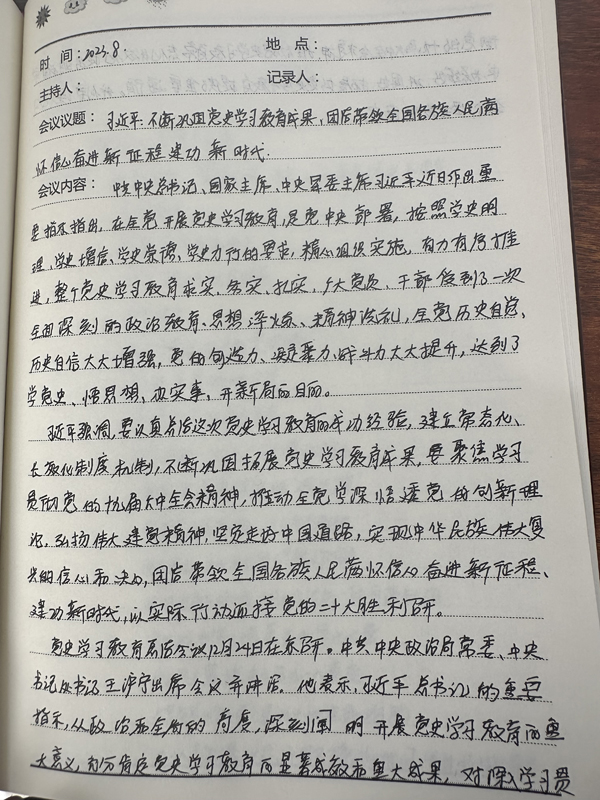 时 间：2023.8 地 点：
主持人： 记录人：
会议议题：习近平:不断巩固党史学习教育成果，团结带领全国各族人民满
怀信心奋进新征程建功新时代.
会议内容：中共中央总书记、国家主席、中央军委主席习近平近日作出重
要指示指出，在全党开展党史学习教育，是党中央部署，按照学史明
理、学史增信、学史崇德、学史力行的要求，精心组织实施，有力有序推
进，整个党史学习教育求实、务实、扎实，广大党员、干部受到了一次
全面深刻的政治教育、思想淬炼、精神洗礼，全党历史自觉、
历史自信大大增强，党的创造力、凝聚力、战斗力大大提升，达到了
学党史、悟思想、办实事、开新局的目的。
习近平强调，要认真总结这次党史学习教育的成功经验，建立常态化、
长效化制度机制，不断巩固拓展党史学习教育成果，要聚焦学习
贯彻党的十九届六中全会精神，推动全党学深悟透党的创新理
论，弘扬伟大建党精神，坚定走好中国道路，实现中华民族伟大复
兴的信心和决心，团结带领全国各族人民满怀信心奋进新征程、
建功新时代，以实际行动迎接党的二十大胜利召开。
党史学习教育总结会议12月24日在京召开。中共中央政治局常委、中央
书记处书记王沪宁出席会议并讲话。他表示，习近平总书记的重要
指示，从政治和全局的高度，深刻阐明开展党史学习教育的重
大意义，充分肯定党史学习教育的显著成效和重大成果，对深入学习贯